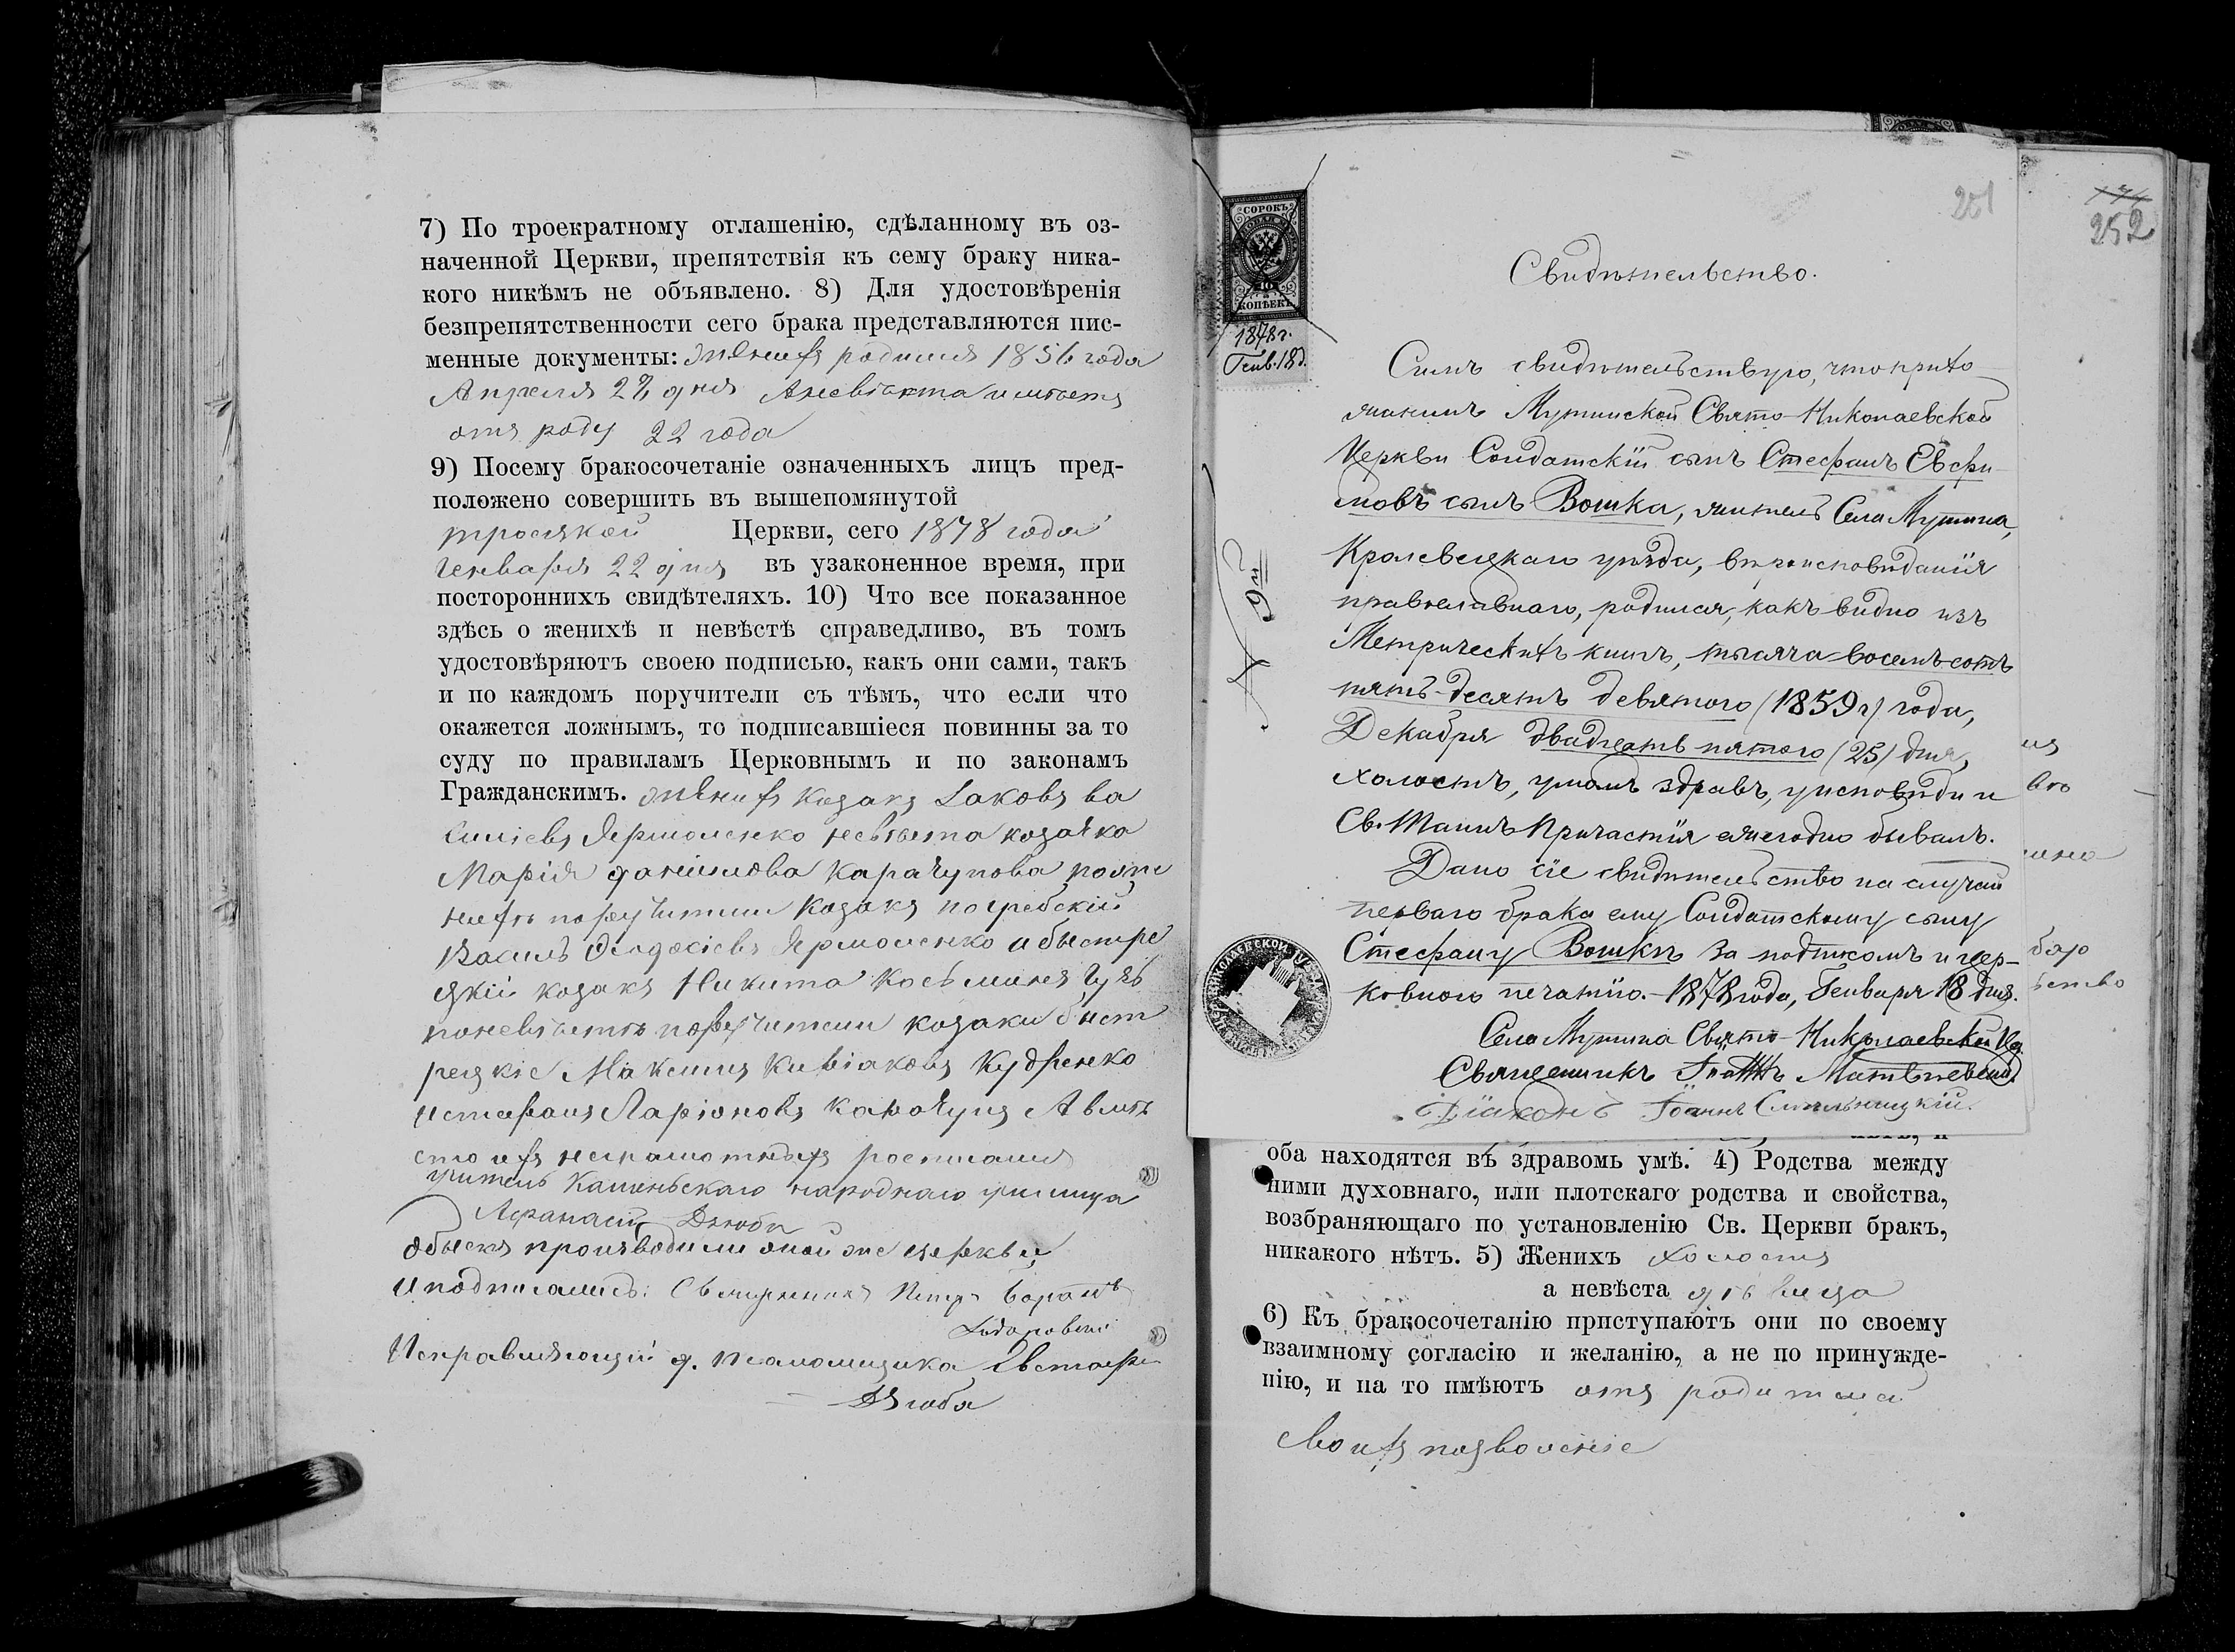 7) По троекратному оглашенію, сдѣланному въ оз-
наченной Церкви, препятствія къ сему браку ника-
кого никѣмъ не объявлено. 8) Для удостовѣренія
безпрепятственности сего брака представляются пис-
менные документы: женихъ родился 1856 года
Апреля 22 дня Аневѣста имѣетъ
отъ роду 22 года
9) Посему бракосочетаніе означенныхъ лицъ пред-
положено совершить въ вышепомянутой
троецкой Церкви, сего 1878 года
генваря 22 дня въ узаконенное время, при
постороннихъ свидѣтеляхъ. 10) Что все показанное
здѣсь о женихѣ и невѣстѣ справедливо, въ томъ
удостовѣряютъ своею подписью, какъ они сами, такъ
и по каждомъ поручители съ тѣмъ, что если что
окажется ложнымъ, то подписавшіеся повинны за то
суду по правиламъ Церковнымъ и по законамъ
Гражданскимъ. женихъ козакъ Іаковъ ва
силіевъ Ярмоленко невѣста козачка
Марія даніилова Карачунова пояже
нихѣ поручители Козакъ погребскій
Василь Ярмоленко и быстре
цкій козакъ Никита Косьминъ
поневѣстѣ поручители козаки быст
рецкіе Максимъ Кудренко
истефанъ Ларіоновъ Карачунъ Авмѣ
сто ихъ неграмотныхъ росписался
учитель Каменьскаго народнаго училища
Афанасій Дзюба
Обыскъ производили оной же церкви,
И подписались: Священникъ Петръ

Исправляющій д. псаломщика Евстафій
Дзюба
251
252
СОРОКЪ
40
КОПѢЕКЪ
1878 г.
Генв. 18 д.
№ 9й
Свидѣтельство.
Симъ свидѣтельствую, что прихо-
жанинъ Мутинской Свято-Николаевской
Церкви Солдатскій сынъ Стефанъ Евфи-
мовъ сынъ Вошка, житель Села Мутина,
Кролевецкаго уѣзда, вѣроисповѣданія
православнаго, родился, какъ видно изъ
Метрическихъ книгъ, тысяча-восемь-сотъ
пять-десятъ девятого (1859 г) года,
Декабря двадцать пятого (25) дня,
холостъ, умомъ здравъ, уисповѣди и
Св. Таинъ Причастія ежегодно бывалъ.
Дано сіе свидѣтельство на случай
перваго брака ему Солдатскому сыну
Стефану Вошкѣ за подписомъ и цер-
ковною печатію.-1878 года, Генваря 18 дня.
Села Мутина Свято-Николаевской Цер.
Священникъ Матвѣевскій.
Діаконъ Іоаннъ
оба находятся въ здравомъ умѣ. 4) Родства между
ними духовнаго, или плотскаго родства и свойства,
возбраняющаго по установленію Св. Церкви бракъ,
никакого нѣтъ. 5) Женихъ холостъ
а невѣста дѣвица
6) Къ бракосочетанію приступаютъ они по своему
взаимному согласію и желанію, а не по принужде-
нію, и на то имѣютъ отъ родителей
своихъ позволеніе